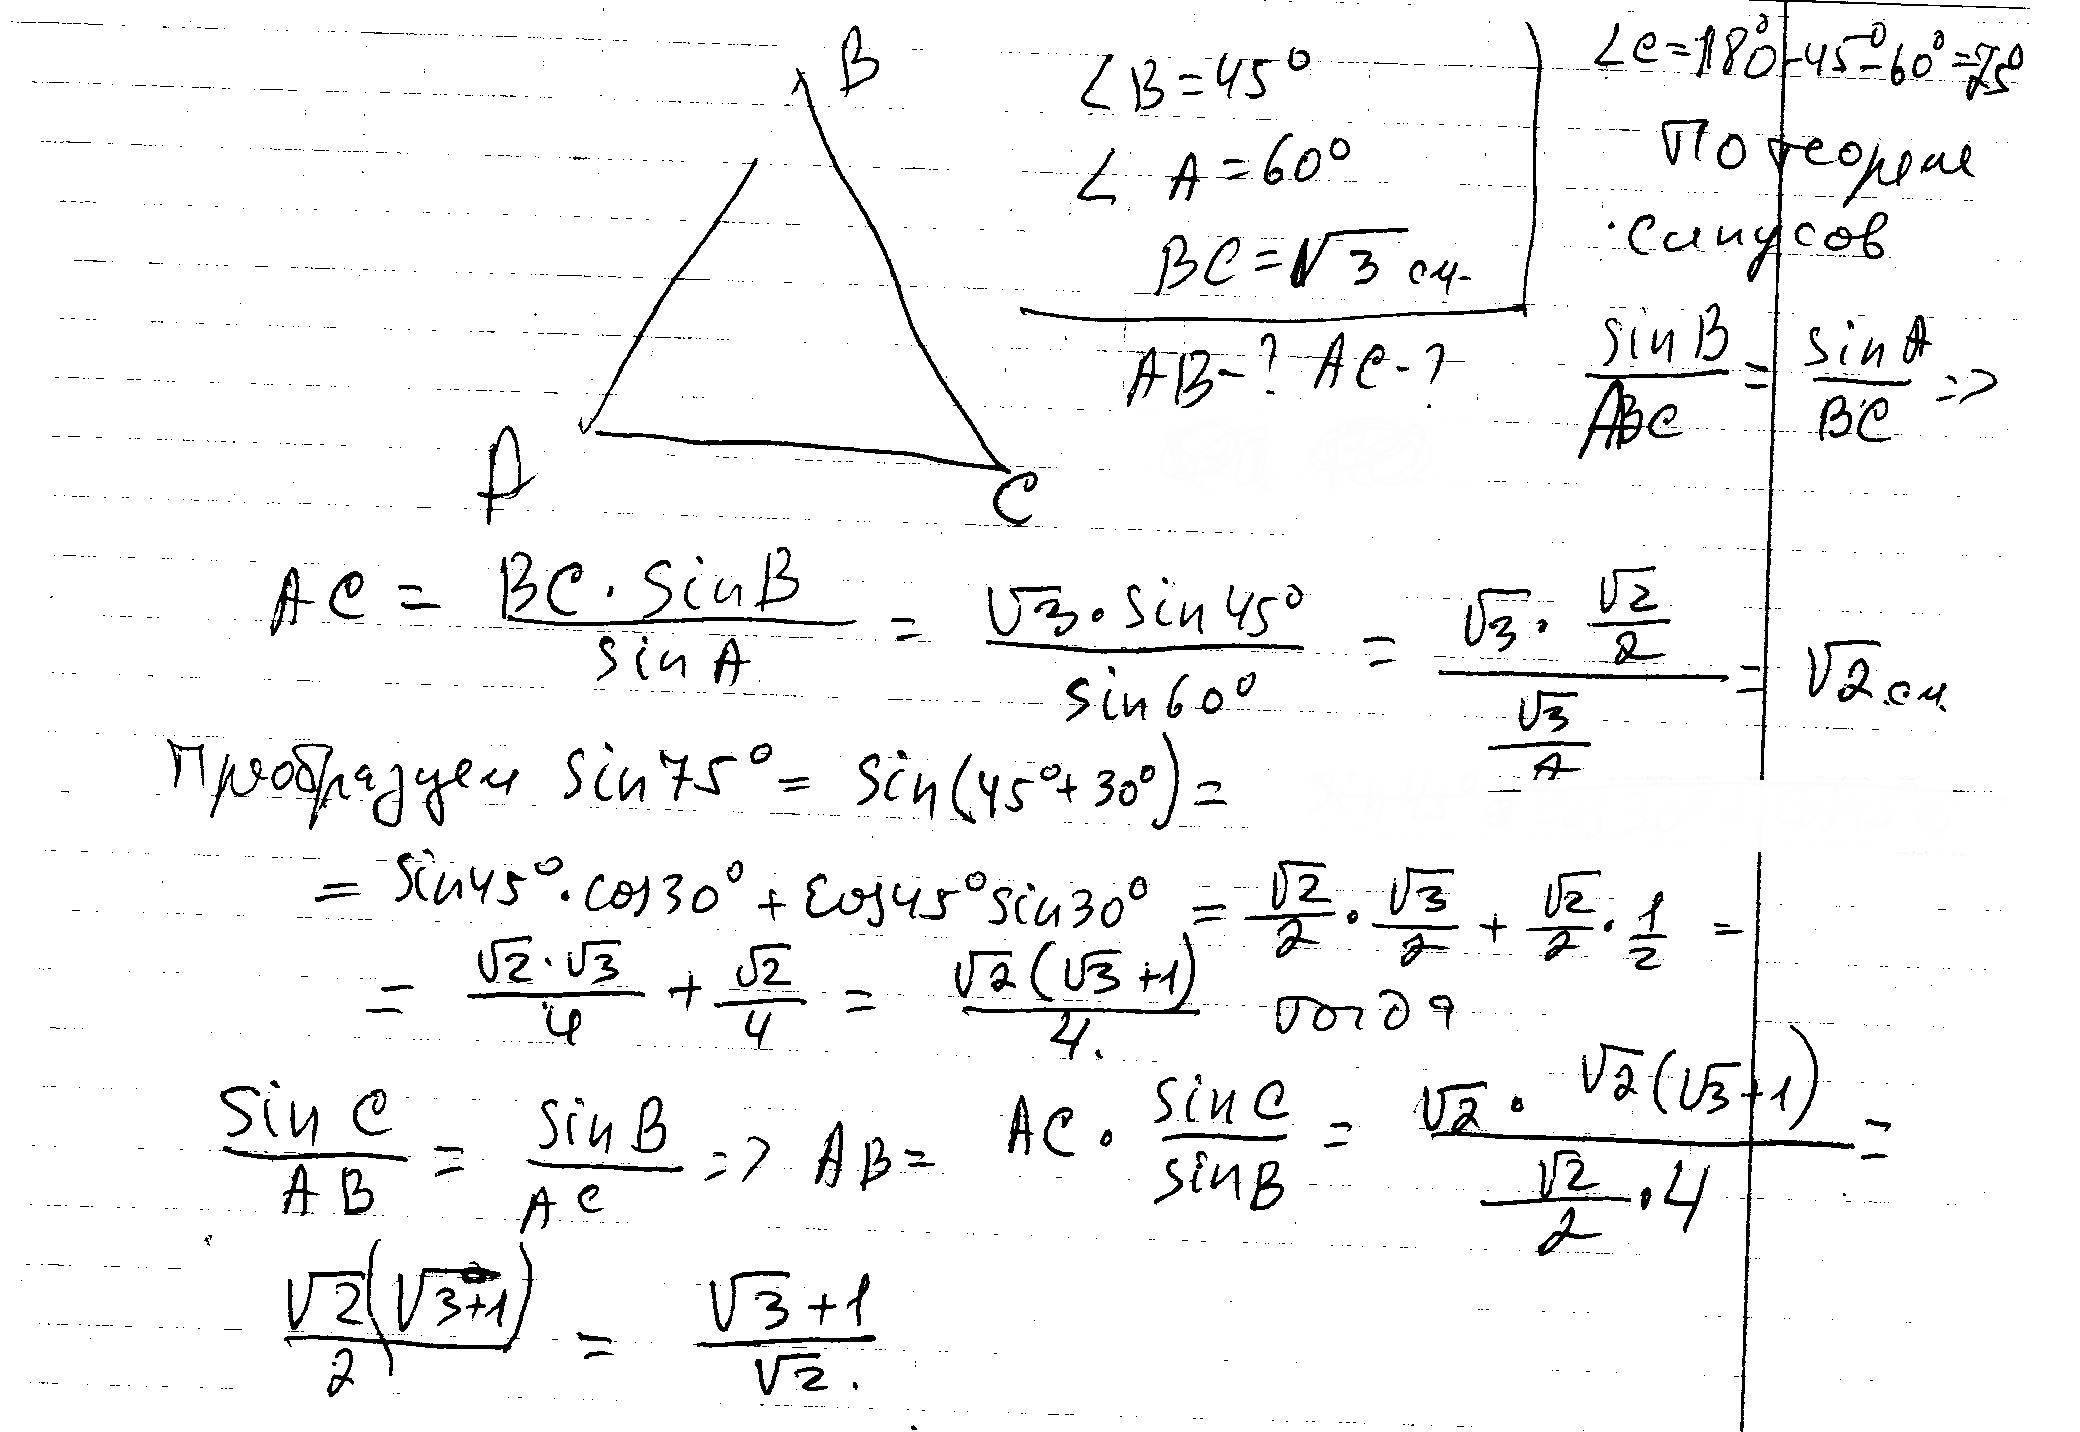 B
A
C
∠B=45°
∠A=60°
BC=√3 см.
AB-? AC-?
∠C=180°-45°-60°=75°
По теореме
синусов
sinB/AC = sinA/BC =>
AC = BC·sinB/sinA = √3·sin45°/sin60° = (√3·√2/2)/(√3/2) = √2 см.
Преобразуем sin75°= sin(45°+30°)=
= sin45°·cos30°+cos45°sin30° = √2/2·√3/2+√2/2·1/2 =
= √2·√3/4 + √2/4 = √2(√3+1)/4. тогда
sinC/AB = sinB/AC => AB= AC·sinC/sinB = √2·√2(√3+1)/(√2/2·4) =
√2(√3+1)/2 = √3+1/√2.